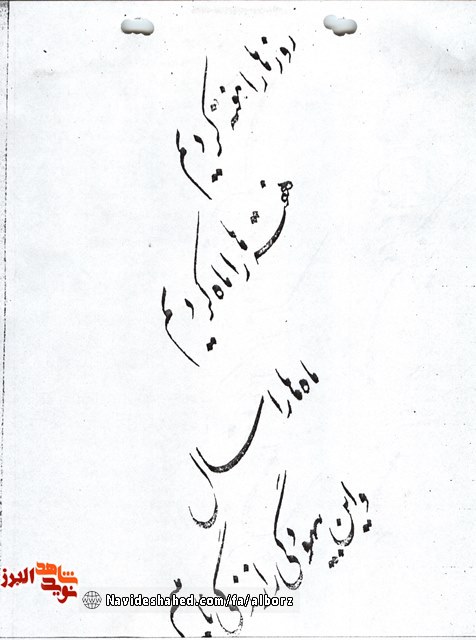 روزها را هفته کردیم
هفته ها را ماه کردیم
ماه ها را سال
و این بیهودگی را زندگی نامیم
نوید شاهد البرز
Navideshahed.com/fa/alborz